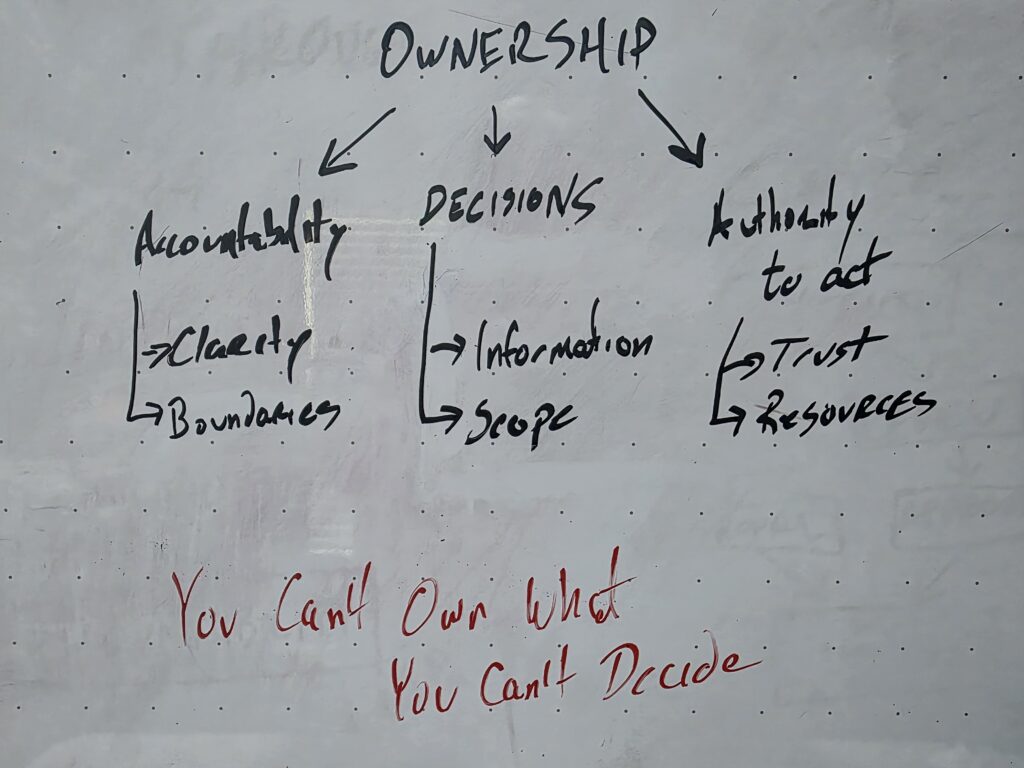 OWNERSHIP
Accountability
DECISIONS
Authority
to act
Clarity
Boundaries
Information
Scope
Trust
Resources
You Can't Own What
You Can't Decide